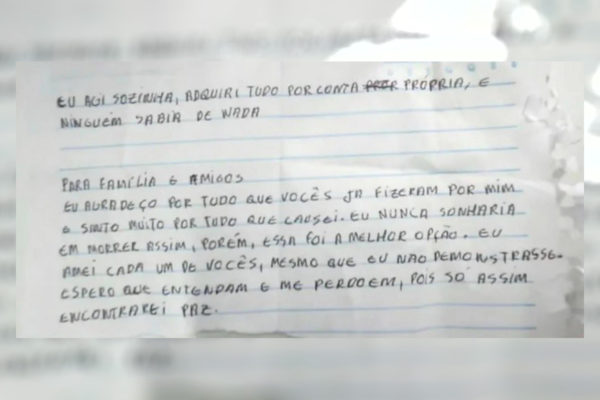 EU AGI SOZINHA, ADQUIRI TUDO POR CONTA PRÓPRIA, E
NINGUÉM SABIA DE NADA
PARA FAMÍLIA E AMIGOS
EU AGRADEÇO POR TUDO QUE VOCÊS JA FIZERAM POR MIM
E SINTO MUITO POR TUDO QUE CAUSEI. EU NUNCA SONHARIA
EM MORRER ASSIM, PORÉM, ESSA FOI A MELHOR OPÇÃO. EU
AMEI CADA UM DE VOCÊS, MESMO QUE EU NÃO DEMONSTRASSE.
ESPERO QUE ENTENDAM E ME PERDOEM, POIS SÓ ASSIM
ENCONTRAREI PAZ.